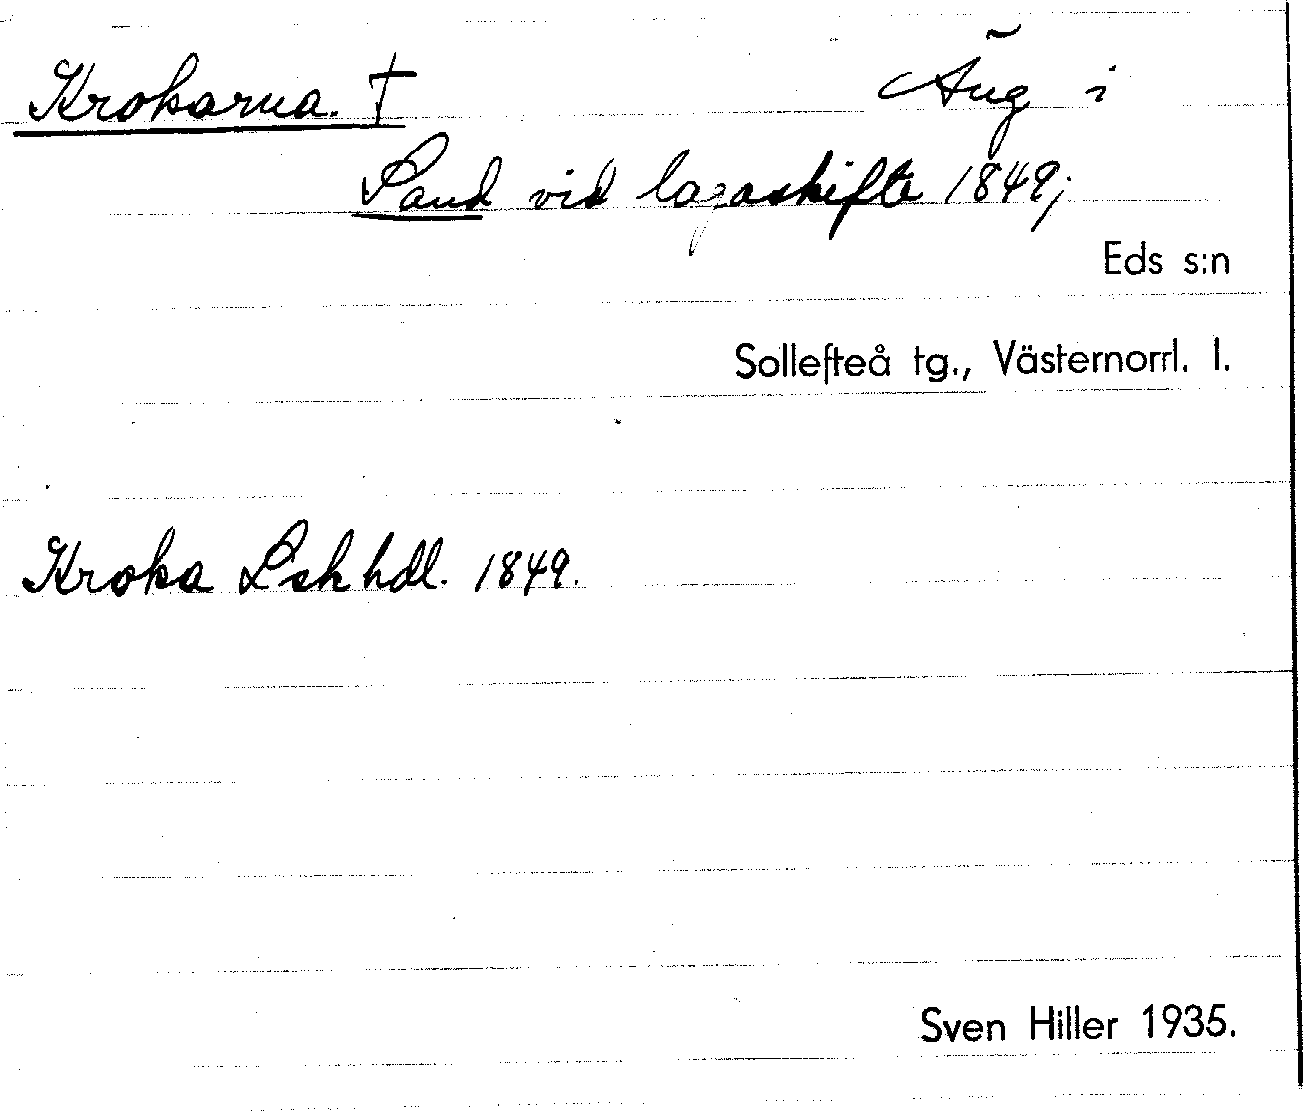 Krokarna. † Äng i
Sand vid lagaskifte 1849;
Eds s:n
Sollefteå tg., Västernorrl. l.
Kroka Lskhdl. 1849.
Sven Hiller 1935.